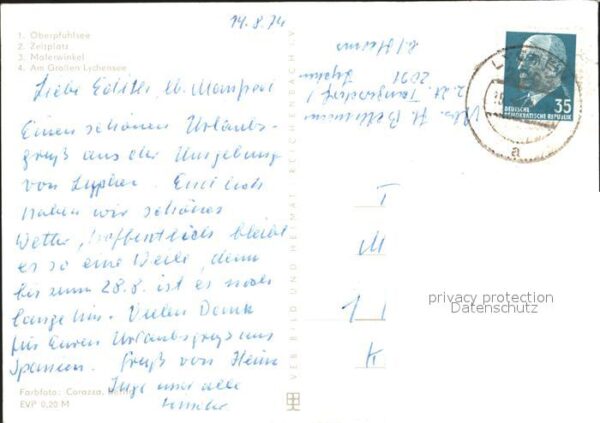 14.8.74
1. Oberpfuhlsee
2. Zeltplatz
3. Malerwinkel
4. Am Großen Lychensee
Liebe Edith, lb. Manfred
Einen schönen Urlaubs-
gruß aus der Umgebung
von Lychen. Endlich
haben wir schönes
Wetter, hoffentlich bleibt
es so eine Weile, denn
bis zum 28.8. ist es noch
lange hin. Vielen Dank
für Euren Urlaubsgruß aus
Spanien. Gruß von Heinz
Inge und alle
Kinder
Farbfoto: Corazza, Berlin
EVP 0,20 M
VEB BILD UND HEIMAT REICHENBACH i. V.
2091
Lychen
DEUTSCHE
DEMOKRATISCHE REPUBLIK
35
LYCHEN
a
privacy protection
Datenschutz